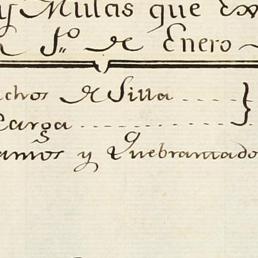 y Mulas que
1.º de Enero
chos de Silla ....
Carga ..........
y Quebrantado